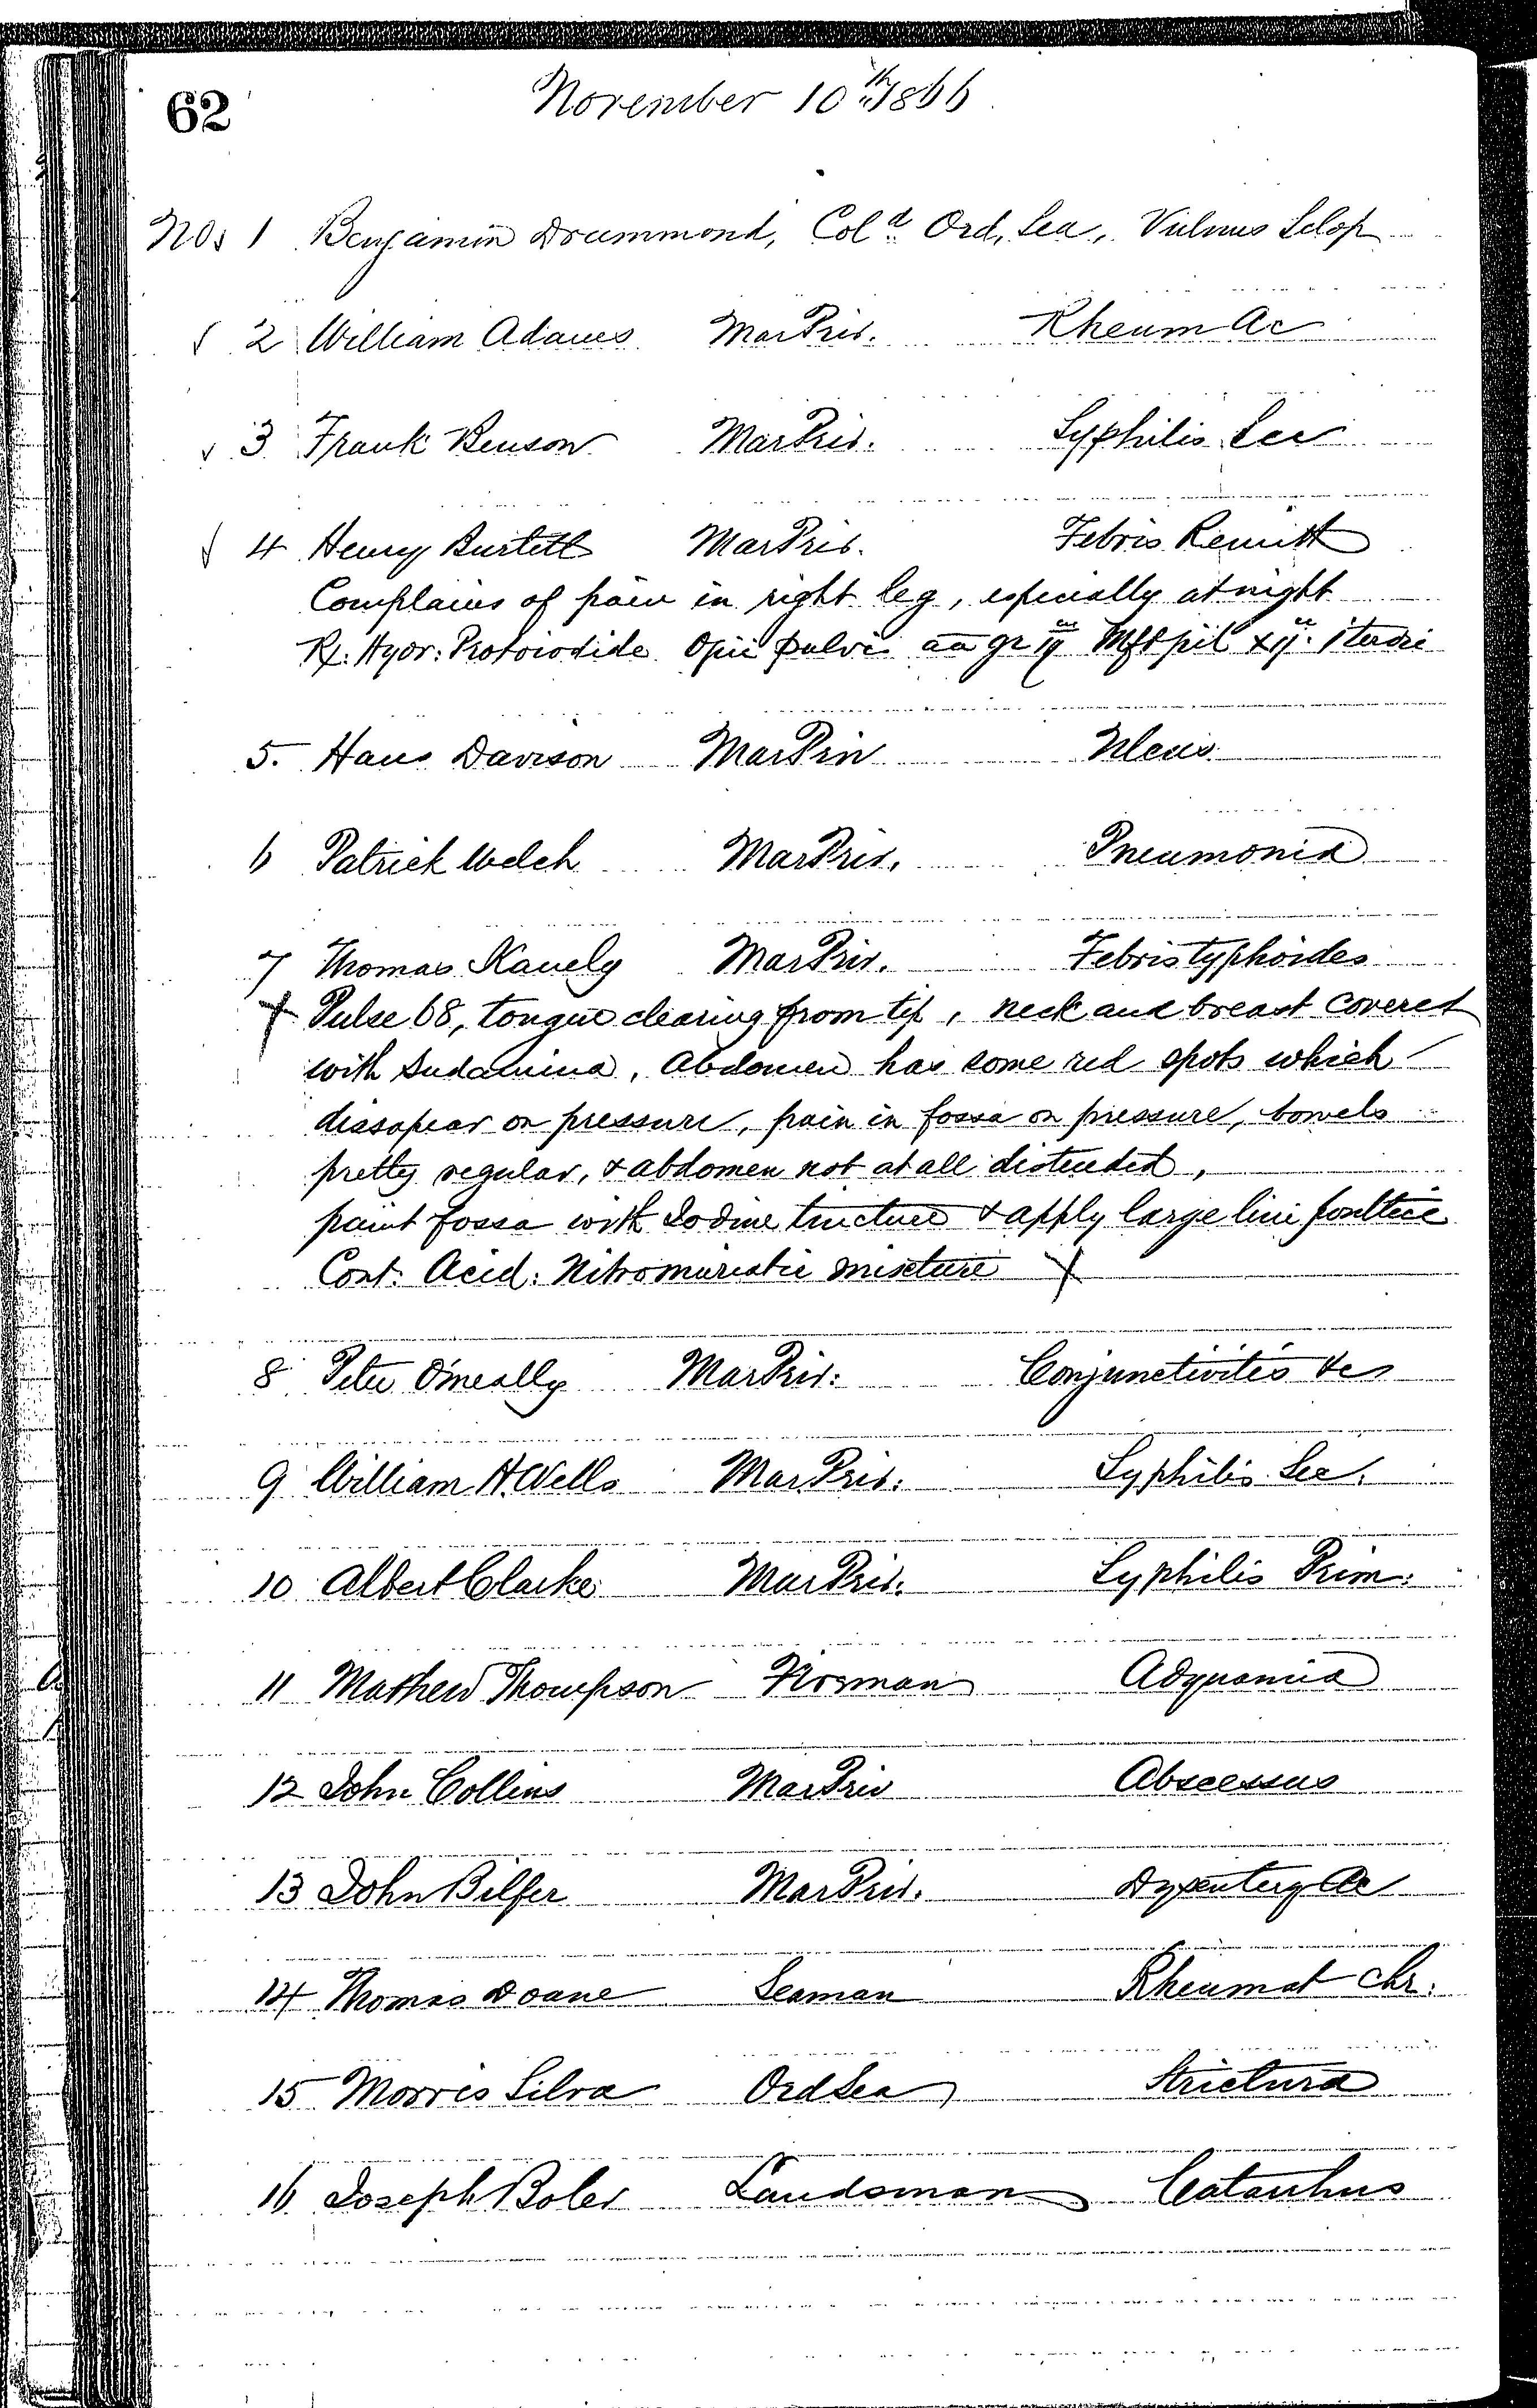 62
November 10th 1866
Nos 1 Benjamin Drummond, Cold Ord, Sea, Vulnus Sclop
2 William Adams Mar Priv. Rheum Ac
3 Frank Benson Mar Priv. Syphilis Sec
4 Henry Burtett Mar Priv. Febris Remitt
Complains of pain in right leg, especially at night
Rx: Hyor: Protoiodide Opii pulvis aa gr Mft pil xij. 1 ter die
5. Hans Davison Mar Priv Ulcus.
6 Patrick Welch Mar Priv. Pneumonia
7 Thomas Kavely Mar Priv. Febris typhoides
Pulse 68, tongue clearing from tip, neck and breast covered
with Sudamina, Abdomen has some red spots which
dissapear on pressure, pain in fossa on pressure, bowels
pretty regular, & abdomen not at all distended,
paint fossa with Iodine tincture & apply large lini poultice
Cont: Acid: Nitromuriatic mixture
8 Peter O'neally Mar Priv: Conjunctivitis &c
9 William H. Wells Mar Priv: Syphilis Sec.
10 Albert Clarke Mar Priv. Syphilis Prim:
11 Mathew Thompson Firsman Adynamia
12 John Collins Mar Priv Abscessus
13 John Bilfer Mar Priv. Dysentery Ac
14 Thomas Doane Seaman Rheumat chr.
15 Morris Silva Ord Sea Strictura
16 Joseph Boler Landsman Catarrhus